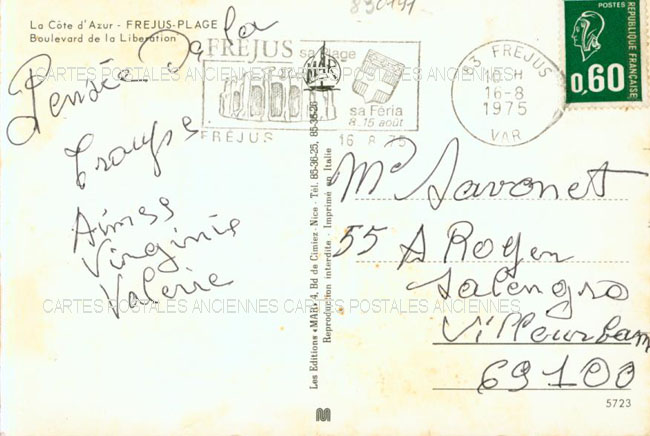 La Côte d'Azur - FREJUS-PLAGE
Boulevard de la Libération
Pensée
Aimée
Virginie
Valérie
FREJUS sa plage
sa Féria
8_15 août
FREJUS
16 8 75
83 FREJUS
H
16-8
1975
VAR
POSTES
0,60
RÉPUBLIQUE FRANÇAISE
Les Editions «MAR» 4, Bd de Cimiez - Nice - Tél. 85-36-25, 85-35-26
Reproduction interdite - Imprimé en Italie
Md Savonet
55 A Roger
Salengro
Villeurban
69100
5723
CARTES POSTALES ANCIENNES CARTES POSTALES ANCIENNES
CARTES POSTALES ANCIENNES CARTES POSTALES ANCIENNES